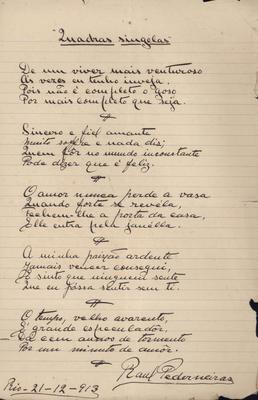 "Quadras singelas"
De um viver mais venturoso
Às vezes eu tenho inveja,
Pois não é completo o goso
Por mais completo que seja.
Sincero e fiel amante
Muito soffre e nada diz;
Quem fôr no mundo inconstante
Pode dizer que é feliz.
O amor nunca perde a vasa
Quando forte se revela,
Fechem-lhe a porta da casa,
Elle entra pela janella.
A minha paixão ardente
Jamais vencer consegui,
E sinto que ninguem sente
Que eu possa sentir sem ti.
O tempo, velho avarento,
É grande especulador,
Dá cem annos de tormento
Por um minuto de amôr.
Raul Pederneiras
Rio-21-12-913